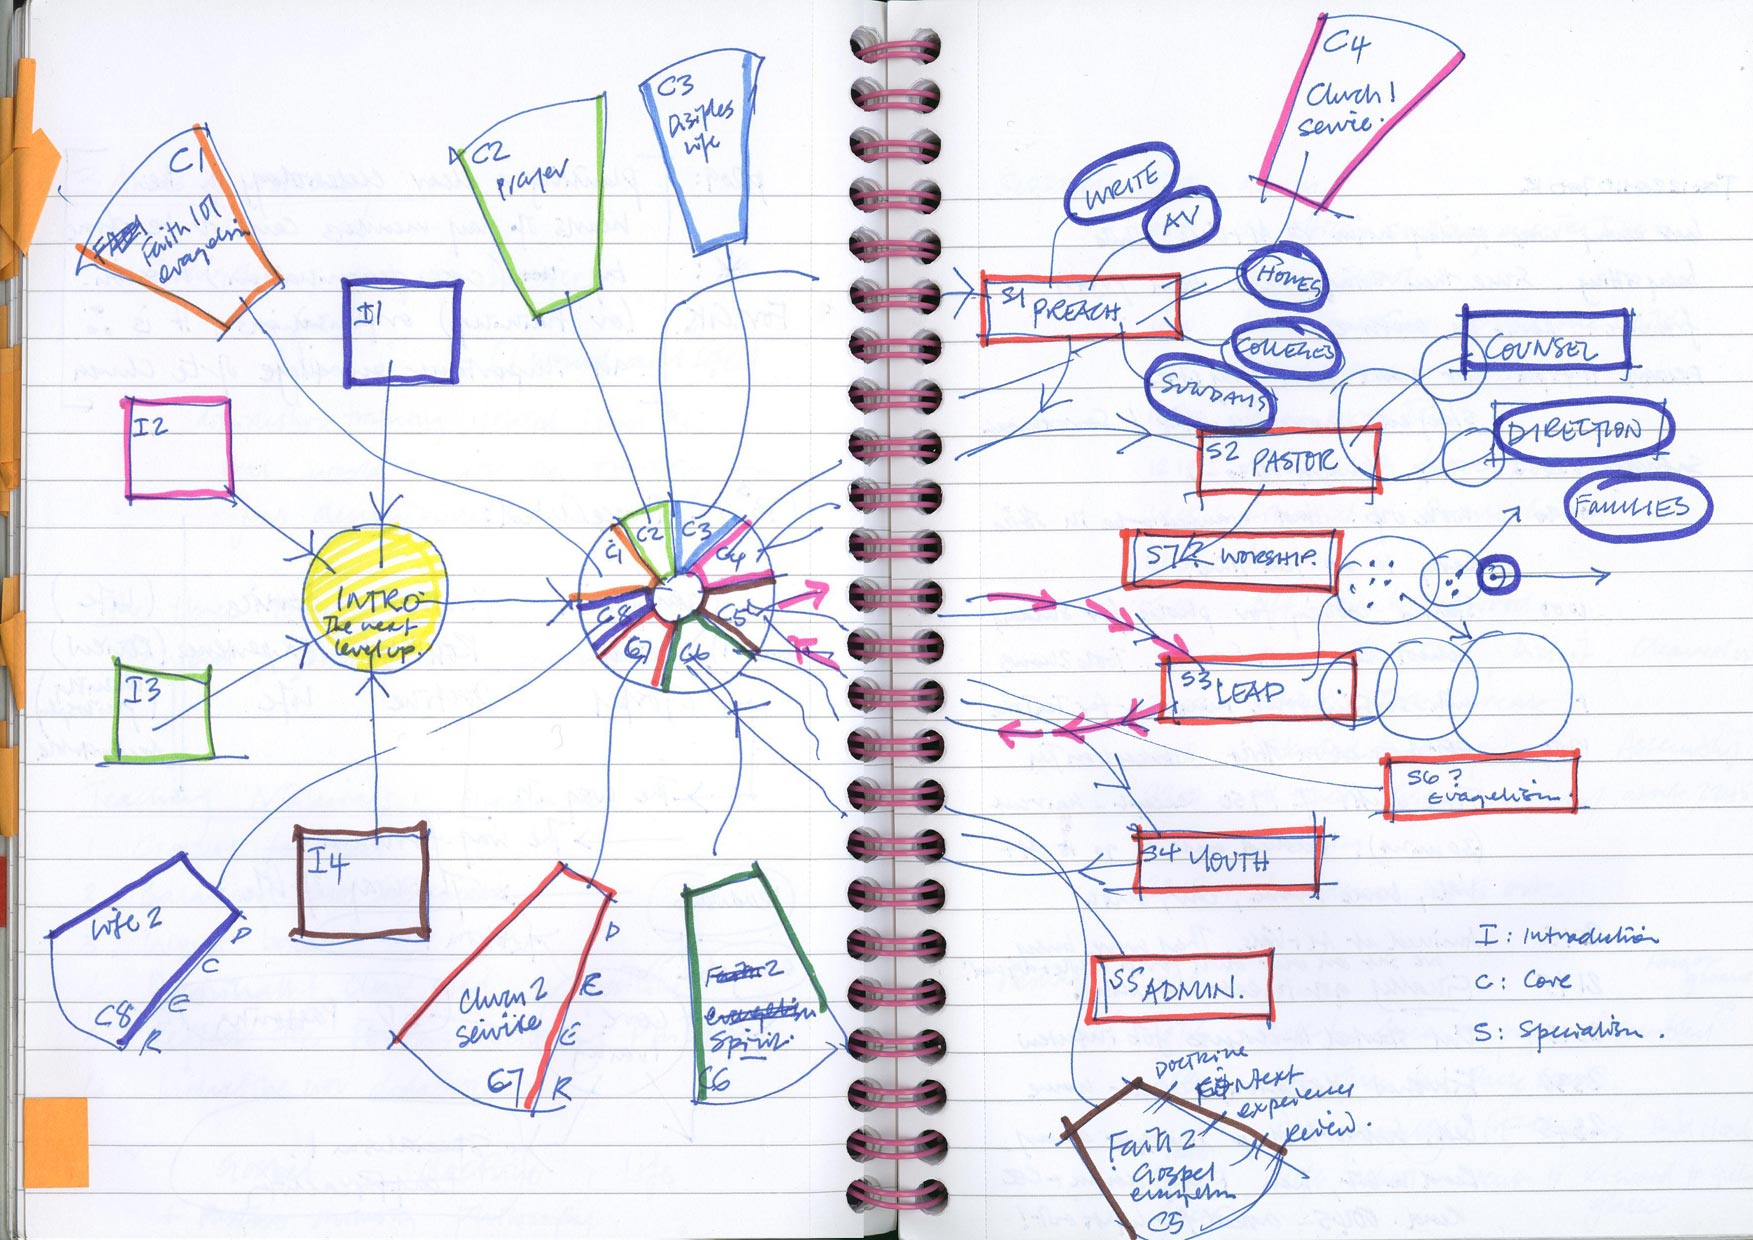 C1
Faith 101
evagelism
C2
prayer
C3
Disiples
Life
I1
I2
I3
I4
INTRO
The next
level up.
C1
C2
C3
C4
C5
C6
C7
C8
Life 2
C8
D
C
E
R
Churh 2
service
C7
D
E
E
R
Faith 2
evangelism
Spirit.
C6
C4
Church 1
servie.
WRITE
AV
HOMES
COLLEGES
SUNDAYS
S1 PREACH
COUNSEL
DIRECTION
FAMILIES
S2 PASTOR
S7? WORSHIP.
S3 LEAD
S6?
Evagelism.
S4 YOUTH
S5 ADMIN.
I: Introduction
C: Core
S: Specialism.
Doctrine
context
experience
review.
Faith 2
Gospel
evangelism
C5